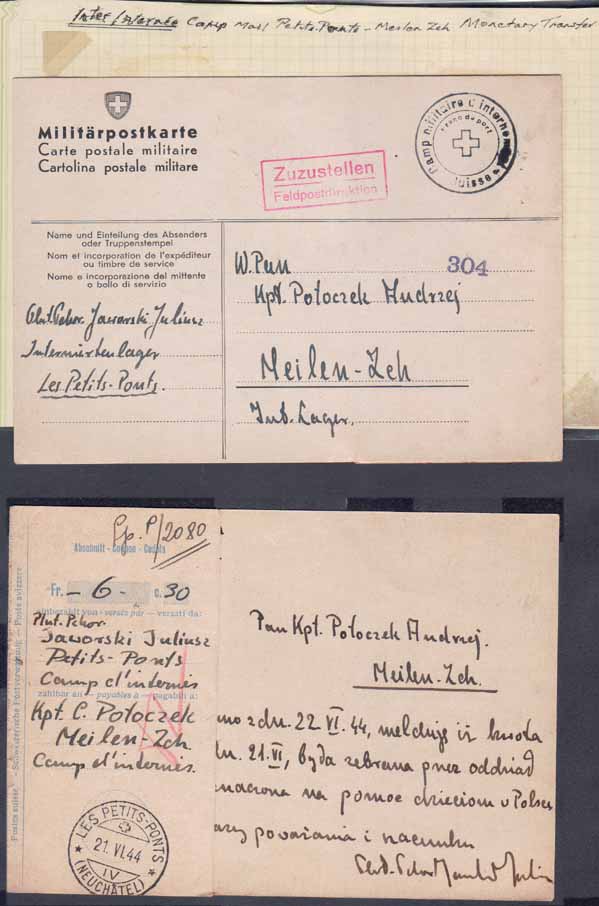 Camp Mail Petits-Ponts - Meilen Zch Monetary Transfer
Militärpostkarte
Carte postale militaire
Cartolina postale militare
Zuzustellen
Feldpostdirektion
Camp militaire d'internement
Franc de port
Suisse
Name und Einteilung des Absenders
oder Truppenstempel
Nom et incorporation de l'expéditeur
ou timbre de service
Nome e incorporazione del mittente
o bollo di servizio
Jaworski Juliusz
Internuertenlager
Les Petits-Ponts.
W.Pan
304
Kpt. Potoczek Andrzej
Meilen-Zch
Int. Lager.
Gp. P/2080
Abschnitt - Coupon - Cedola
Fr. - 6 - c. 30
einbezahlt von - versés par - versati da:
Plut. Pchor.
Jaworski Juliusz
Petits-Ponts
Camp d'internés
zahlbar an - payables à - pagabili a:
Kpt. C. Potoczek
Meilen-Zch.
Camp d'internés.
LES PETITS-PONTS
21.VI.44
IV
(NEUCHÂTEL)
Posts suisse - Schweizerische Postverwaltung - Poste svizzere
Pan Kpt. Potoczek Andrzej.
Meilen-Zch.
z dn. 22 VI. 44, melduję iż kwota
dn. 21.VI, była zebrana przez oddział
na pomoc dzieciom w Polsce
poważania i szacunku